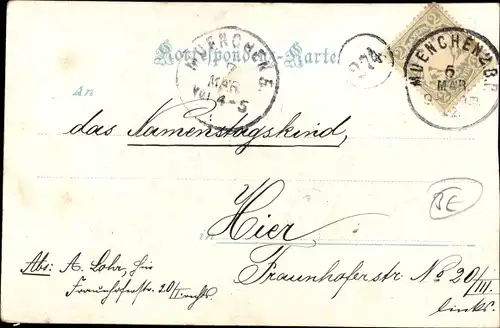 Correspondenz-Karte
MUENCHEN 5.
7
MAR
4-5
MUENCHEN 2 B.P.
6
MAR
An
das Namenstagskind,
in
Hier
BE
Fraunhoferstr. No 20/III.
links.
Abs: A. Lohr, hie
Fraunhoferstr. 20/I rechts.